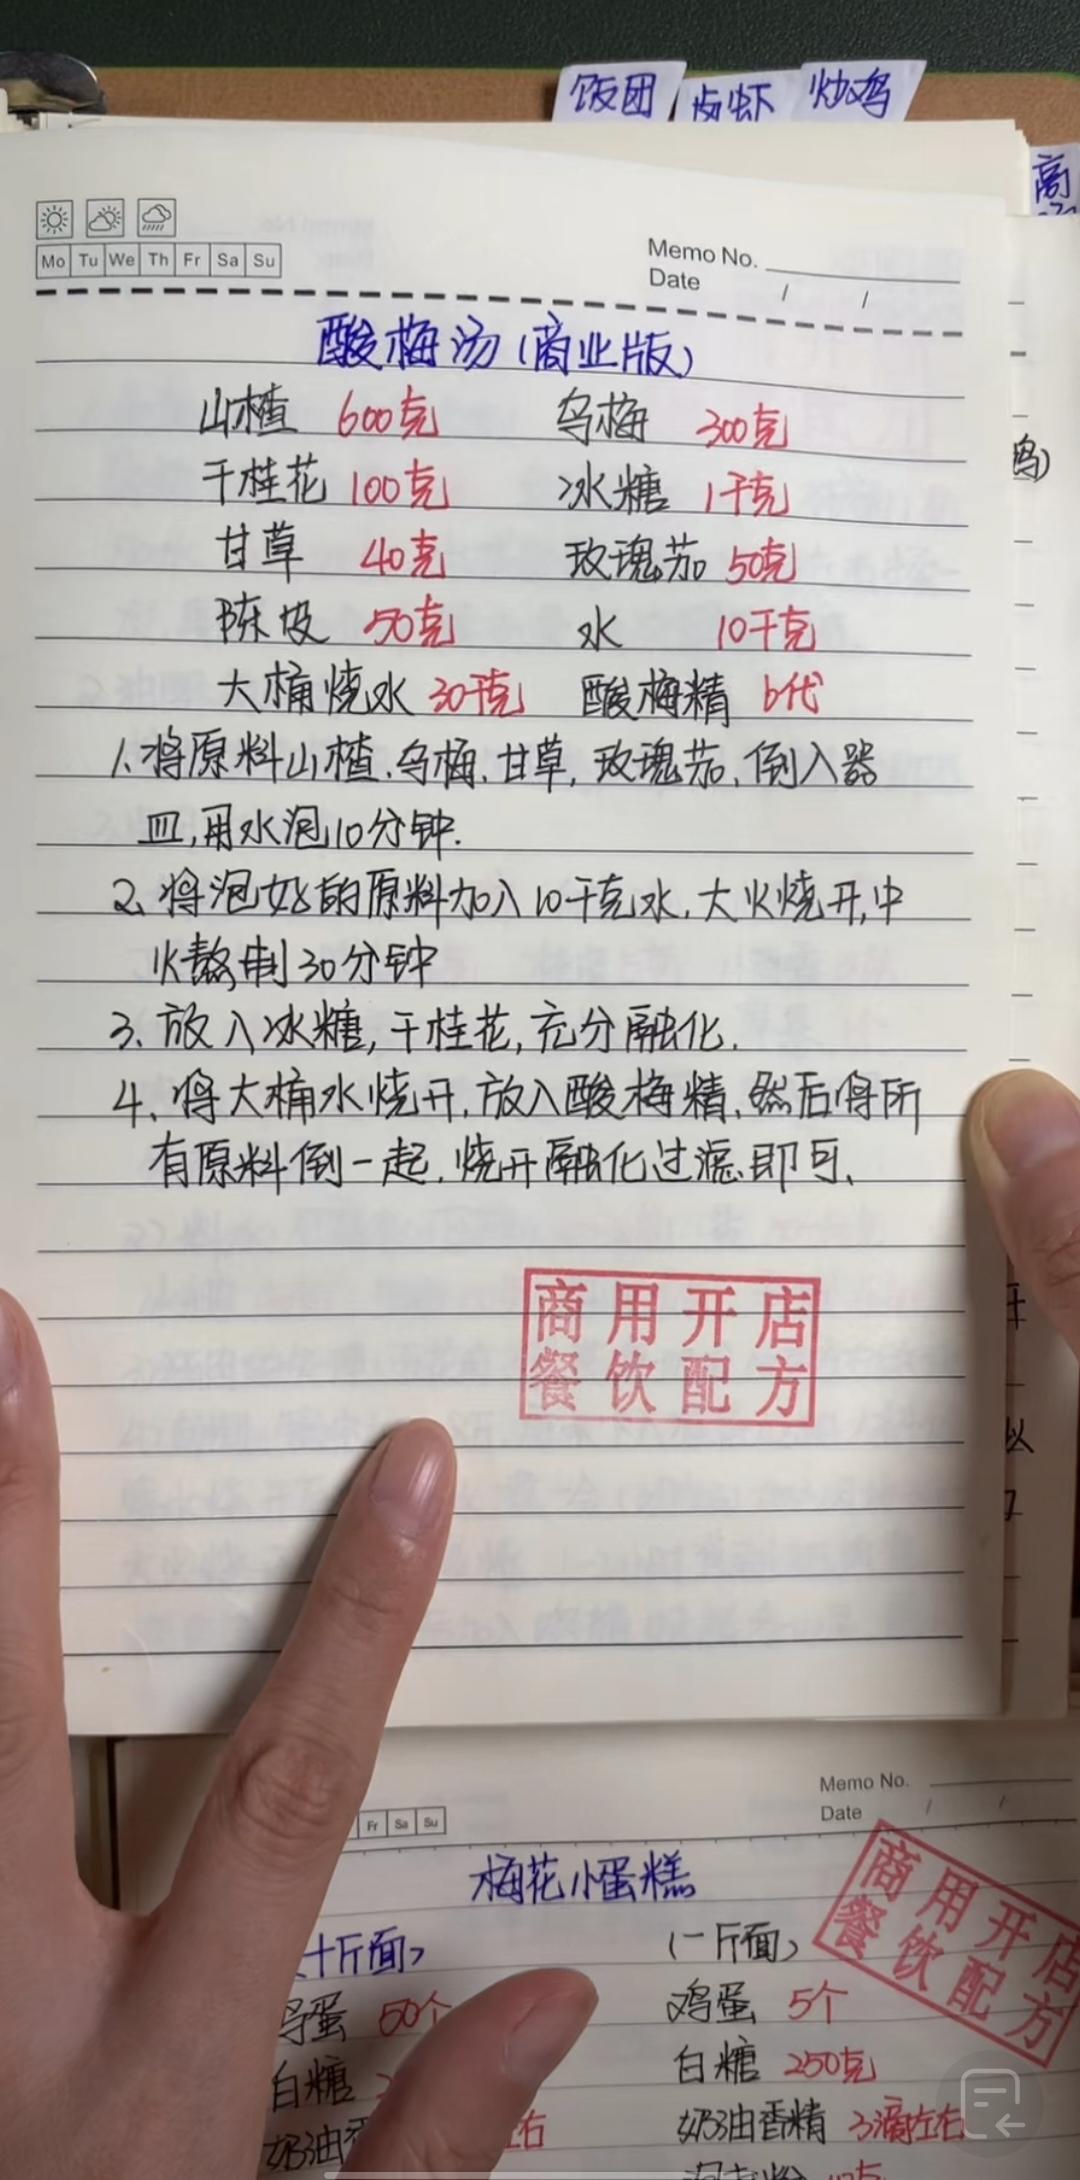 饭团
卤虾
炒鸡
Mo Tu We Th Fr Sa Su
Memo No.
Date / /
酸梅汤(商业版)
山楂 600克 乌梅 300克
干桂花 100克 冰糖 1千克
甘草 40克 玫瑰茄 50克
陈皮 50克 水 10千克
大桶烧水 30千克 酸梅精 6代
1、将原料山楂、乌梅、甘草,玫瑰茄、倒入器
皿,用水泡10分钟.
2、将泡好的原料加入10千克水,大火烧开,中
火熬制30分钟
3、放入冰糖,干桂花,充分融化.
4、将大桶水烧开,放入酸梅精、然后将所
有原料倒一起.烧开融化过滤即可、
商用开店
餐饮配方
Memo No.
Date / /
Fr Sa Su
梅花小蛋糕
商用开店
餐饮配方
(十斤面) (一斤面)
鸡蛋 50个 鸡蛋 5个
白糖 白糖 250克
奶油香 左右 奶油香精 3滴左右